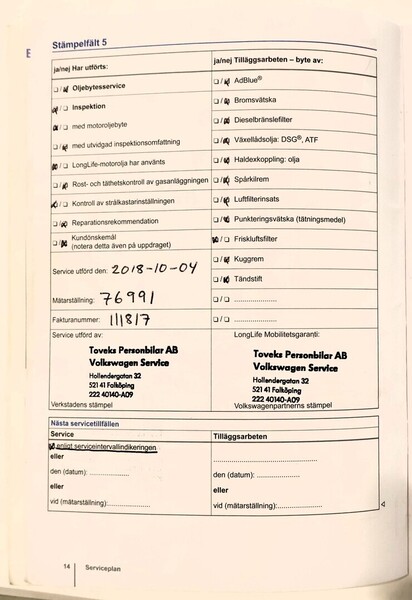 E
Stämpelfält 5
ja/nej Har utförts:
ja/nej Tilläggsarbeten – byte av:
Oljebytesservice
AdBlue®
Inspektion
Bromsvätska
med motoroljebyte
Dieselbränslefilter
med utvidgad inspektionsomfattning
Växellådsolja: DSG®, ATF
LongLife-motorolja har använts
Haldexkoppling: olja
Rost- och täthetskontroll av gasanläggningen
Spärkilrem
Kontroll av strålkastarinställningen
Luftfilterinsats
Reparationsrekommendation
Punkteringsvätska (tätningsmedel)
Kundönskemål
(notera detta även på uppdraget)
Friskluftsfilter
Service utförd den: 2018-10-04
Kuggrem
Tändstift
Mätarställning: 76991
Fakturanummer: 111817
Service utförd av:
LongLife Mobilitetsgaranti:
Toveks Personbilar AB
Volkswagen Service
Hollendergatan 32
521 41 Falköping
222 40140-A09
Verkstadens stämpel
Toveks Personbilar AB
Volkswagen Service
Hollendergatan 32
521 41 Falköping
222 40140-A09
Volkswagenpartnerns stämpel
Nästa servicetillfällen
Service
Tilläggsarbeten
enligt serviceintervallindikeringen
eller
den (datum): ....................
den (datum): ....................
eller
eller
vid (mätarställning):....................
vid (mätarställning):....................
14 Serviceplan